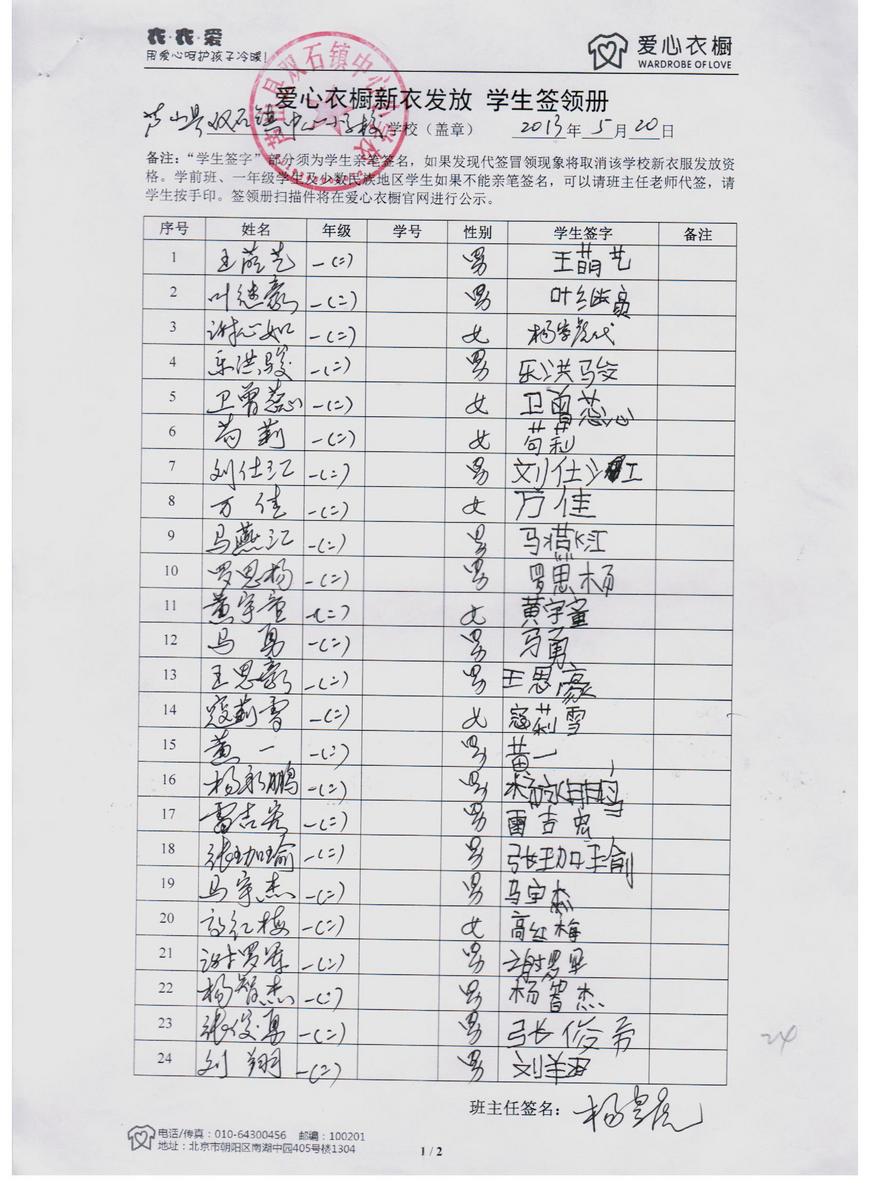 衣·衣·爱
用爱心呵护孩子冷暖!
爱心衣橱
WARDROBE OF LOVE
爱心衣橱新衣发放 学生签领册
芦山县双石镇中心小学校 学校（盖章） 2013年5月20日
芦山县双石镇中心小学校
备注：“学生签字”部分须为学生亲笔签名，如果发现代签冒领现象将取消该学校新衣服发放资
格。学前班、一年级学生及少数民族地区学生如果不能亲笔签名，可以请班主任老师代签，请
学生按手印。签领册扫描件将在爱心衣橱官网进行公示。
序号 姓名 年级 学号 性别 学生签字 备注
1 王萌艺 一(二) 男 王萌艺
2 叶继豪 一(二) 男 叶继豪
3 谢心如 一(二) 女 代
4 乐洪骏 一(二) 男 乐洪骏
5 卫曾蕊心 一(二) 女 卫曾蕊心
6 苟莉 一(二) 女 苟莉
7 刘仕江 一(二) 男 刘仕江
8 万佳 一(二) 女 万佳
9 马燕江 一(二) 男 马燕江
10 罗思杨 一(二) 男 罗思杨
11 黄宇童 一(二) 女 黄宇童
12 马勇 一(二) 男 马勇
13 王思豪 一(二) 男 王思豪
14 寇莉雪 一(二) 女 寇莉雪
15 黄一 一(二) 男 黄一
16 杨永鹏 一(二) 男 杨永鹏
17 雷吉宏 一(二) 男 雷吉宏
18 张珈瑜 一(二) 男 张珈瑜
19 马宇杰 一(二) 男 马宇杰
20 高红梅 一(二) 女 高红梅
21 谢罗军 一(二) 男 谢罗军
22 杨智杰 一(二) 男 杨智杰
23 张俊勇 一(二) 男 张俊勇
24 刘翔 一(二) 男 刘翔
24
班主任签名：杨
电话/传真：010-64300456 邮编：100201
地址：北京市朝阳区南湖中园405号楼1304
1 / 2